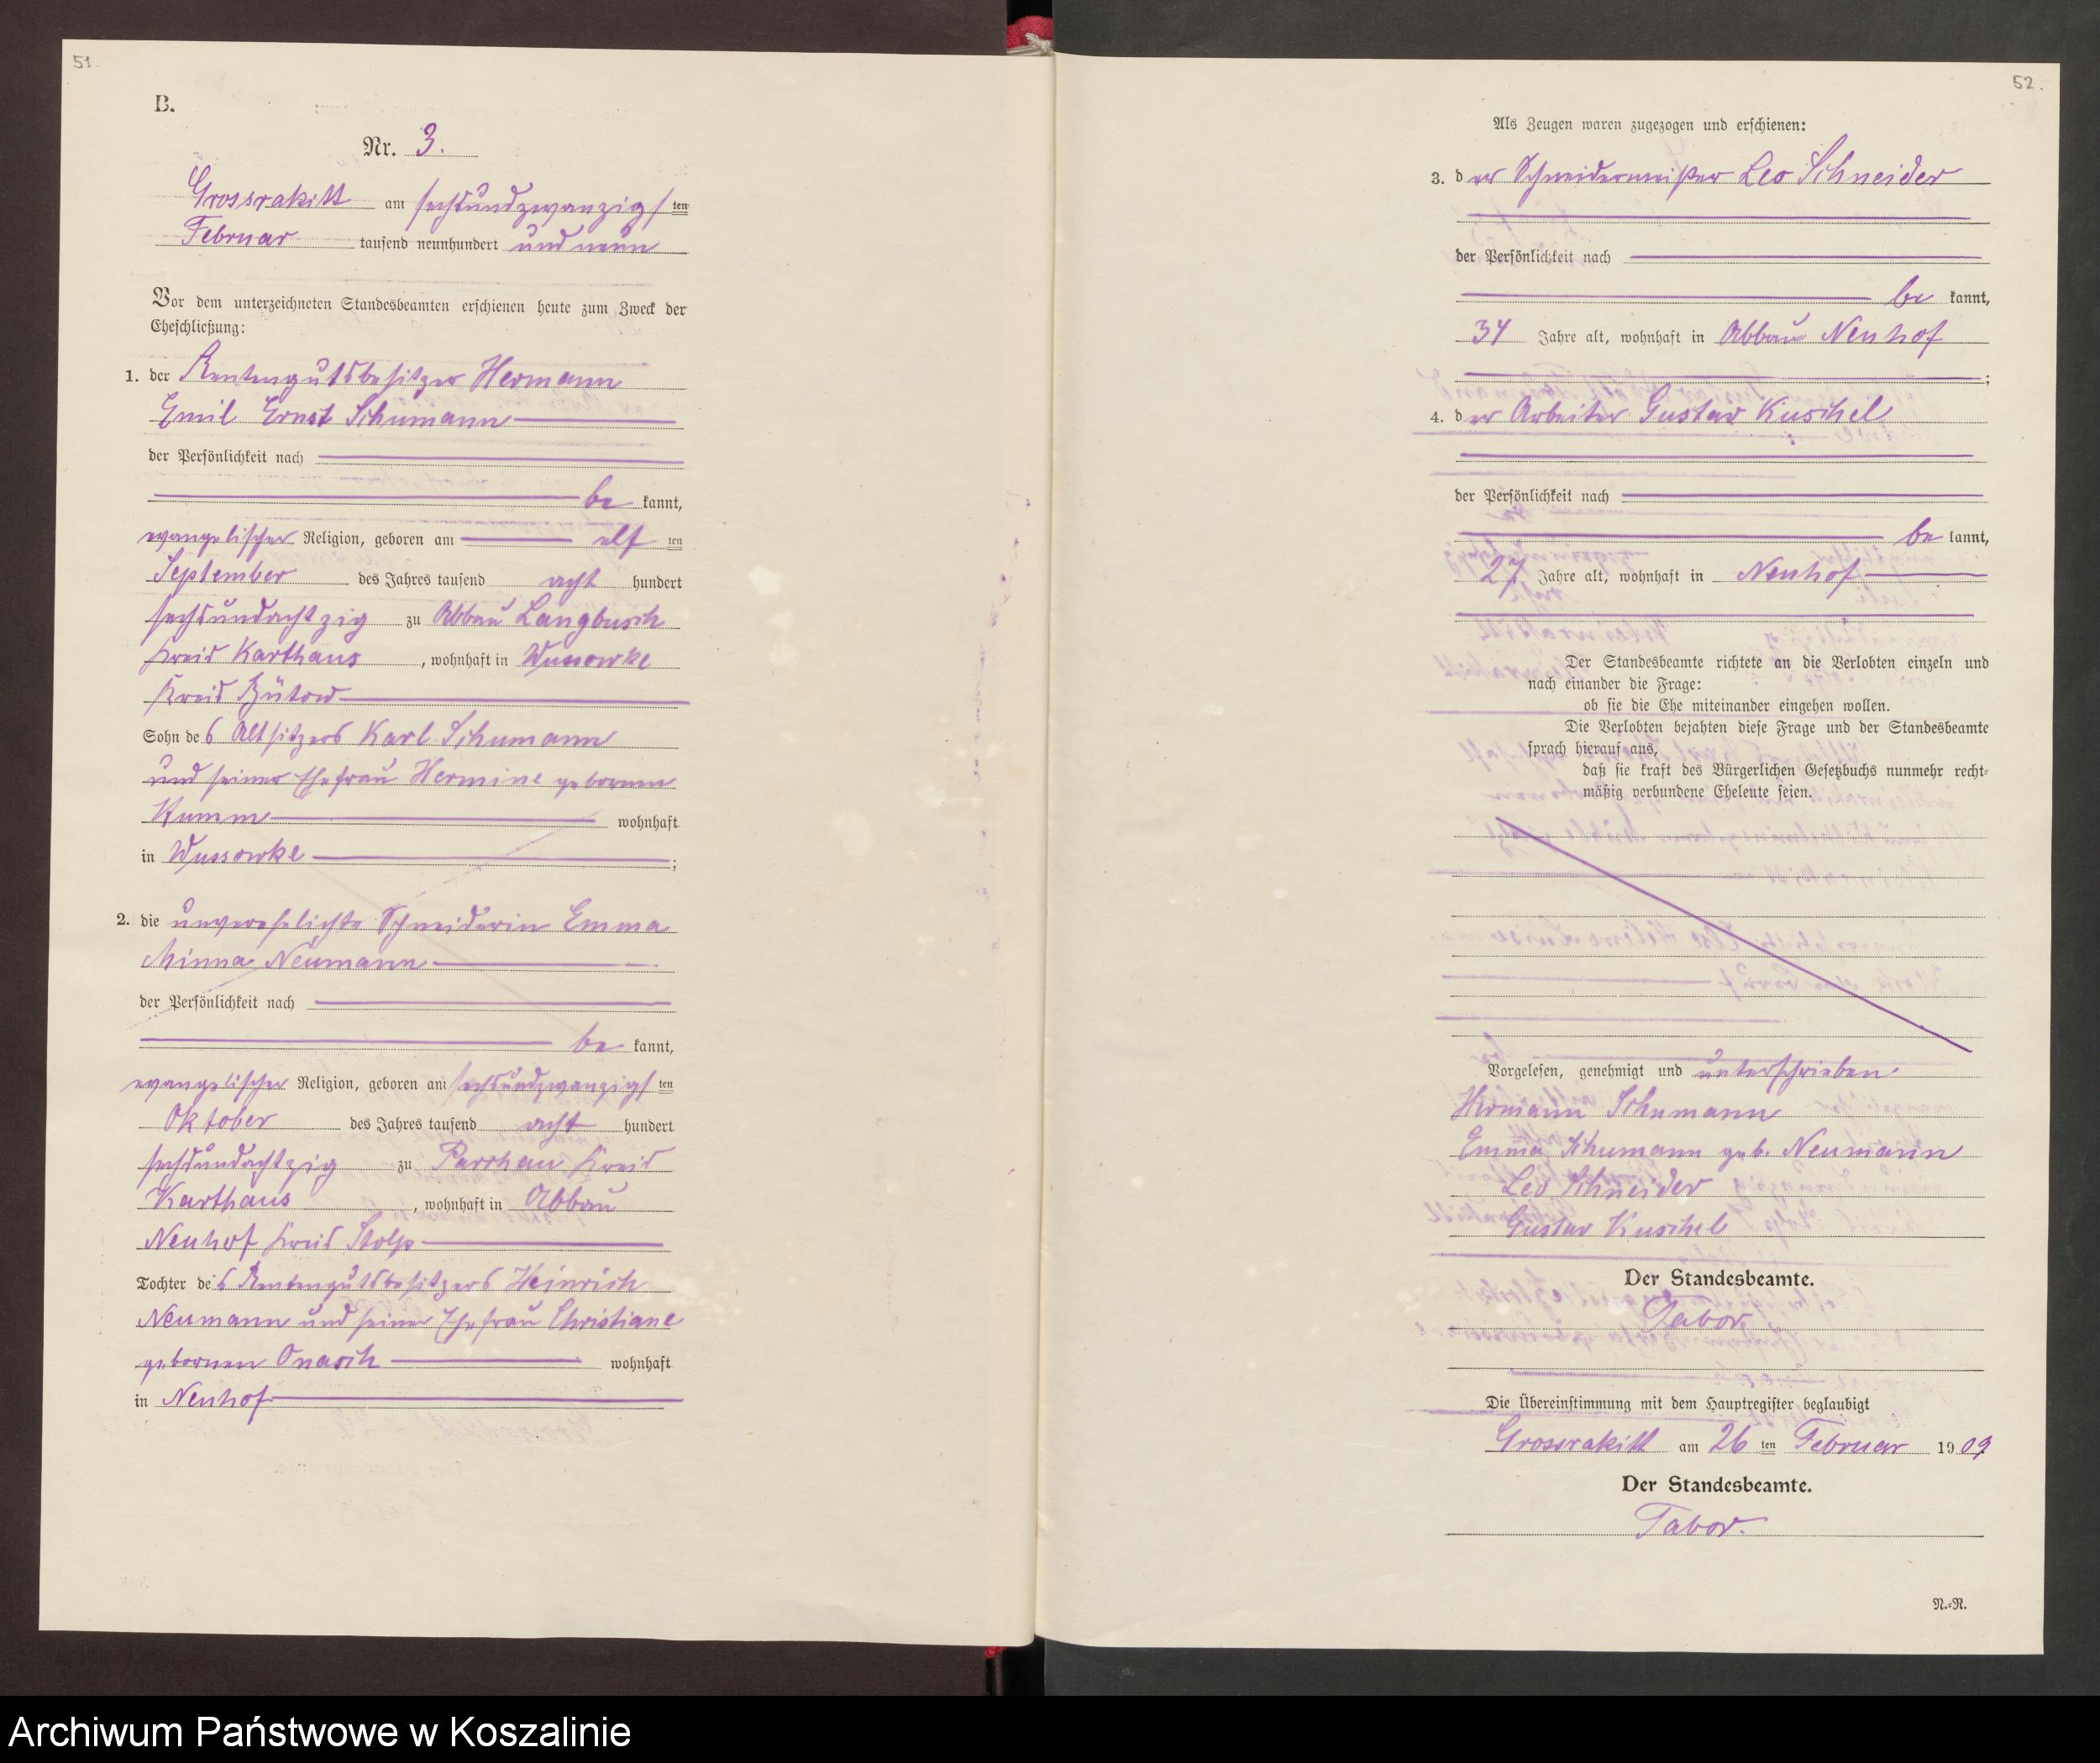 51
B.
Nr. 3.
Grossrakitt am sechsundzwanzigsten
Februar tausend neunhundert und neun
Vor dem unterzeichneten Standesbeamten erschienen heute zum Zweck der
Eheschließung:
1. der Rentengutsbesitzer Hermann
Emil Ernst Schumann
der Persönlichkeit nach
be kannt,
evangelischer Religion, geboren am elf ten
September des Jahres tausend acht hundert
sechsundachtzig zu Abbau Langbusch
Kreis Karthaus, wohnhaft in Wussowke
Kreis Bütow
Sohn des Altsitzers Karl Schumann
und seiner Ehefrau Hermine gebornen
Kumm wohnhaft
in Wussowke;
2. die unverehelichte Schneiderin Emma
Minna Neumann
der Persönlichkeit nach
be kannt,
evangelischer Religion, geboren am sechsundzwanzigsten
Oktober des Jahres tausend acht hundert
sechsundachtzig zu Parchau Kreis
Karthaus, wohnhaft in Abbau
Neuhof Kreis Stolp
Tochter des Rentengutsbesitzers Heinrich
Neumann und seiner Ehefrau Christiane
gebornen Onasch wohnhaft
in Neuhof
52.
Als Zeugen waren zugezogen und erschienen:
3. der Schneidermeister Leo Schneider
der Persönlichkeit nach
be kannt,
34 Jahre alt, wohnhaft in Abbau Neuhof
;
4. der Arbeiter Gustav Kuschel
der Persönlichkeit nach
be kannt,
27 Jahre alt, wohnhaft in Neuhof
Der Standesbeamte richtete an die Verlobten einzeln und
nach einander die Frage:
ob sie die Ehe miteinander eingehen wollen.
Die Verlobten bejahten diese Frage und der Standesbeamte
sprach hierauf aus,
daß sie kraft des Bürgerlichen Gesetzbuchs nunmehr recht-
mäßig verbundene Eheleute seien.
Vorgelesen, genehmigt und unterschrieben.
Hermann Schumann
Emma Schumann geb. Neumann
Leo Schneider
Gustav Kuschel
Der Standesbeamte.
Tabor.
Die Übereinstimmung mit dem Hauptregister beglaubigt
Grossrakitt am 26 ten Februar 1909.
Der Standesbeamte.
Tabor.
N.-R.
Archiwum Państwowe w Koszalinie